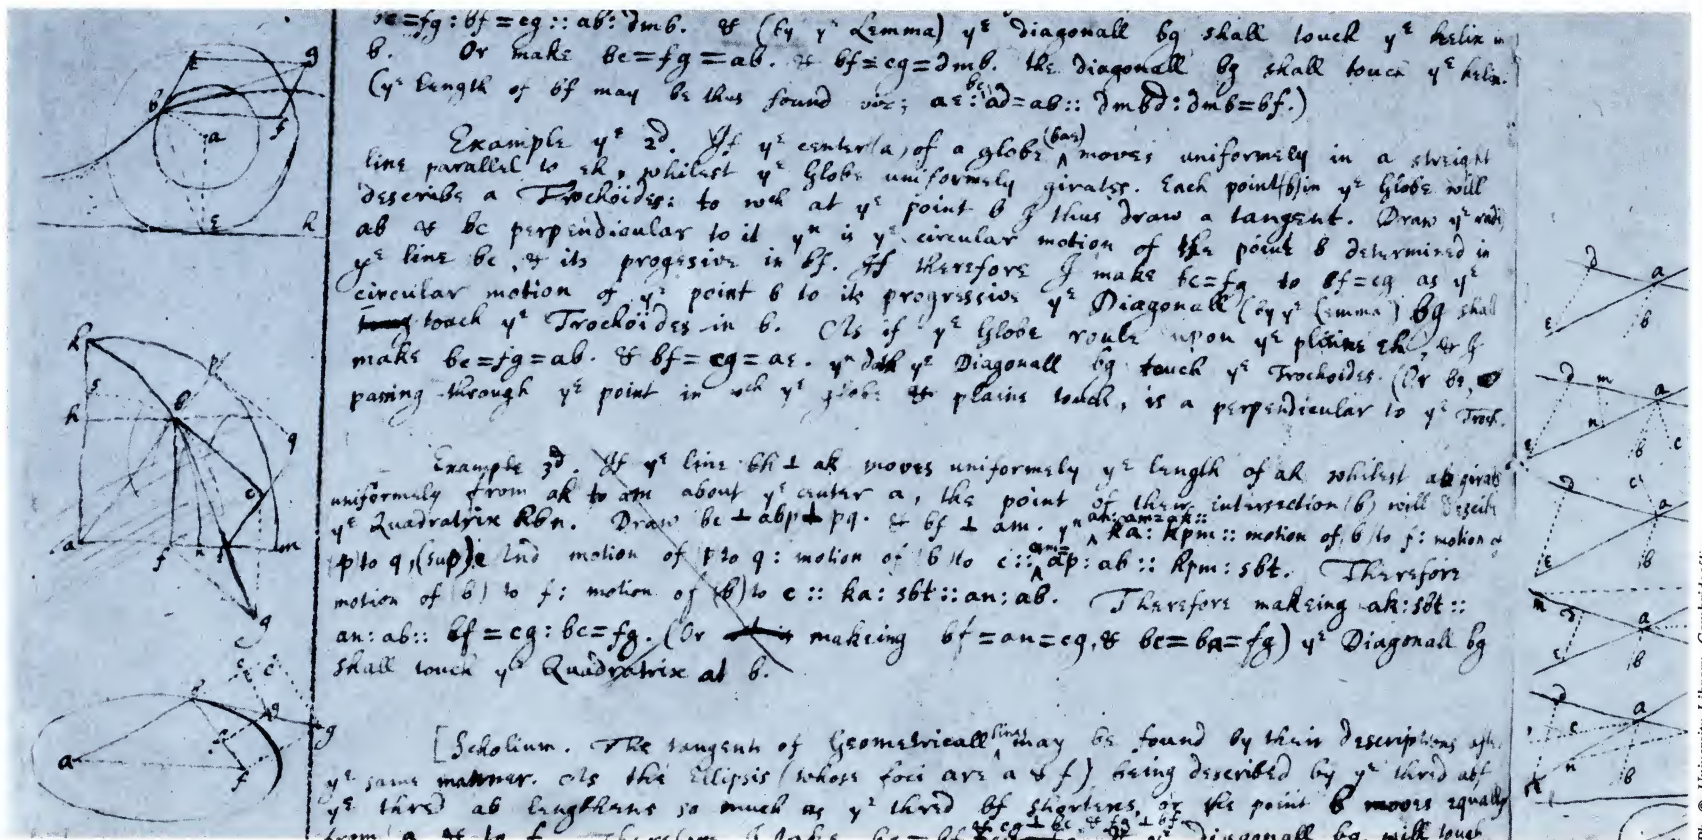 bc=fg : bf=cg :: ab : dmb. & (by yᵉ Lemma) yᵉ diagonall bg shall touch yᵉ helix in
b. Or make bc=fg=ab. & bf=cg=dmb. the diagonall bg shall touch yᵉ helix.
(yᵉ length of bf may be thus found viz; ae : ad=ab :: dmbd : dmb=bf.)
Example yᵉ 2d. If yᵉ center (a) of a globe (bae) moves uniformely in a streight
line parallel to eh, whilest yᵉ Globe uniformely girates. Each point (b) in yᵉ Globe will
describe a Trochoides: to wch at yᵉ point b I thus draw a tangent. Draw yᵉ radij
ab & bc perpendicular to it yⁿ is yᵉ circular motion of the point b determined in
yᵉ line bc, & its progesive in bf. If therefore I make bc=fg to bf=cg as yᵉ
circular motion of yᵉ point b to its progressive yᵉ Diagonall (by yᵉ Lemma) bg shall
touch yᵉ Trochoides in b. As if yᵉ Globe roule upon yᵉ plaine eh, & I
make bc=fg=ab. & bf=cg=ae. yⁿ doth yᵉ Diagonall bg touch yᵉ Trochoides. (Or be,
pasing through yᵉ point in wch yᵉ globe & plaine touch, is a perpendicular to yᵉ Troch.
Example 3d. If yᵉ line bh ⊥ ak moves uniformely yᵉ length of ak whilest ab girats
uniformely from ak to am about yᵉ center a, the point of their intersection (b) will describe
yᵉ Quadratrix kbn. Draw bc ⊥ abp ⊥ pq. & bf ⊥ am. yⁿ ka : kpm :: motion of b to f : motion of
p to q, (sup) And motion of p to q : motion of b to c :: ap : ab :: kpm : sbt. Therefore
motion of (b) to f : motion of (b) to c :: ka : sbt :: an : ab. Therefore makeing ak : sbt ::
an : ab :: bf=cg : bc=fg. (Or makeing bf=an=cg, & bc=ba=fg) yᵉ Diagonall bg
shall touch yᵉ Quadratrix at b.
[Scholium. The tangents of Geometricall lines may be found by their descriptions after
yᵉ same manner. As the Ellipsis (whose foci are a & f) being described by yᵉ thred abf
yᵉ thred ab lengthens so much as yᵉ thred bf shortens, or the point b moves equally